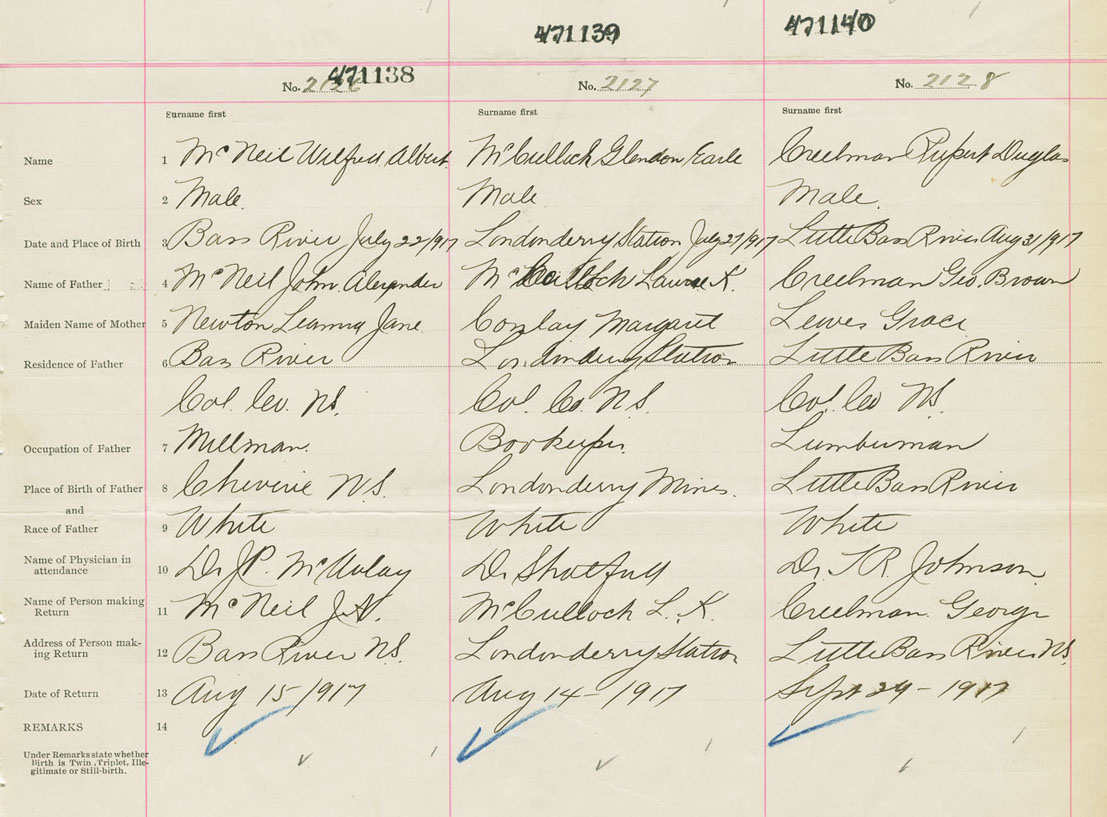 471139 471140
471138
No. 2126 No. 2127 No. 2128
Surname first Surname first Surname first
Name 1 McNeil Wilfred Albert McCulloch Glendon Earle Creelman Rupert Duglas
Sex 2 Male. Male Male.
Date and Place of Birth 3 Bass River July 22/917 Londonderry Station July 27/917 Little Bass River Aug 31/917
Name of Father 4 McNeil John Alexander McCulloch K. Creelman Geo. Brown
Maiden Name of Mother 5 Newton Jane Margaret Lewes Grace
Residence of Father 6 Bass River Londonderry Station Little Bass River
Col. Co. N.S. Col. Co. N.S. Col. Co N.S.
Occupation of Father 7 Millman. Bookeeper. Lumberman
Place of Birth of Father 8 Cheverie N.S. Londonderry Mines. Little Bass River
and
Race of Father 9 White White White
Name of Physician in
attendance 10 Dr J.P. McAulay Dr Dr. T.R. Johnson
Name of Person making
Return 11 McNeil J.A. McCulloch L. K. Creelman George
Address of Person mak-
ing Return 12 Bass River N.S. Londonderry Station Little Bass River N.S.
Date of Return 13 Aug 15-1917 Aug 14-1917 Sept 29-1917
REMARKS 14
Under Remarks state whether
Birth is Twin, Triplet, Ille-
gitimate or Still-birth.